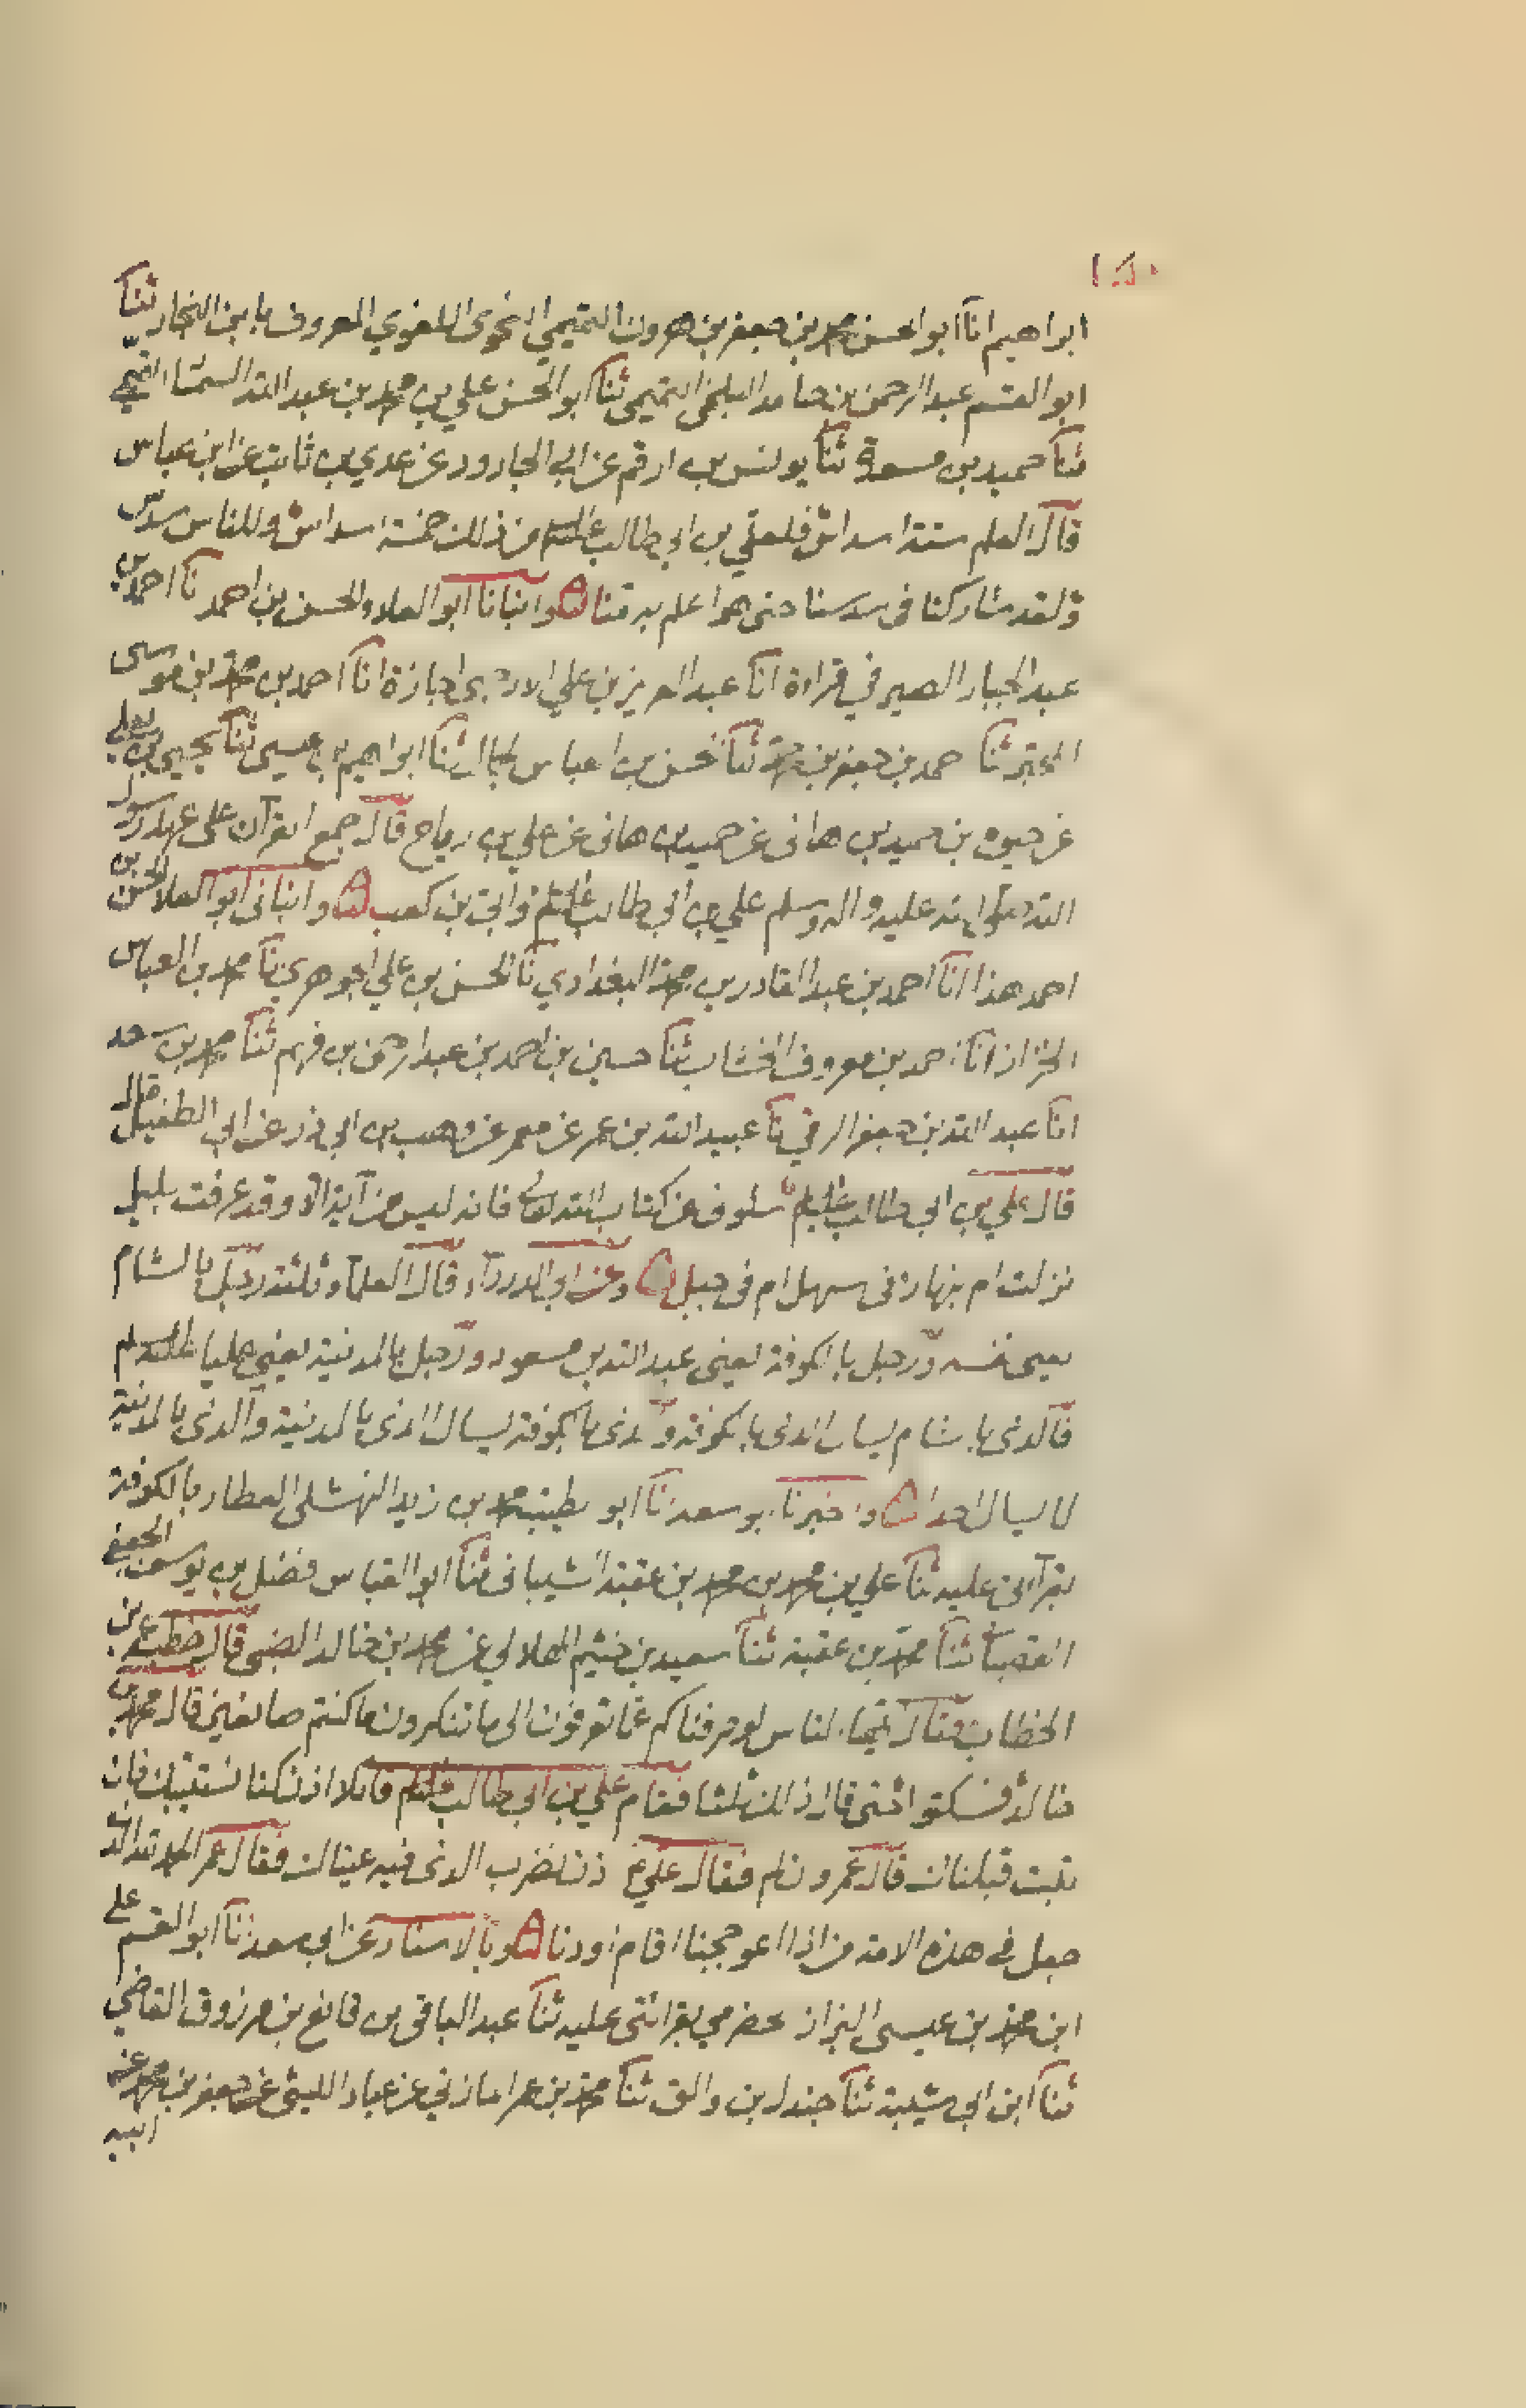 ابراهيم انا ابو الحسن محمد بن جعفر بن هرون التميمي النحوى اللغوي المعروف بابن النجار ثنا
ابو القسم عبد الرحمن بن حامد البلخى التميمى ثنا ابو الحسن علي بن محمد بن عبد الله
ثنا حميد بن مسعدة ثنا يونس بن ارقم عن ابى الجارود عن عدي بن ثابت عن ابن عباس
قال العلم ستة اسداس فلعلي بن ابى طالب من ذلك خمسة اسداس وللناس سدس
ولقد شاركنا فى سدسنا حتى هو اعلم به منا وانبانا ابو العلاء الحسن بن احمد نا احمد بن
عبد الجبار الصيرفي قراءة انا عبد العزيز بن علي اجازة انا احمد بن محمد بن موسى
ثنا حمد بن جعفر بن محمد ثنا حسن بن العباس ثنا ابراهيم بن عيسى ثنا يحيى بن يعلى
عن حيوه بن حميد بن هانى عن حميد بن هانى عن علي بن رباح قال جمع القرآن على عهد رسول
الله صلى الله عليه واله وسلم علي بن ابي طالب وابى بن كعب وانبانى ابو العلا الحسن بن
احمد هذا انا احمد بن عبد القادر بن محمد البغدادي نا الحسن بن علي الجوهري نا محمد بن العباس
الخزاز انا احمد بن معروف الخشاب ثنا حسين بن احمد بن عبد الرحمن بن فهم ثنا محمد بن سعد
انا عبد الله بن جعفر الرقي نا عبيد الله بن عمر عن معمر عن وهب بن ابي ذر عن ابي الطفيل قال
قال علي بن ابي طالب سلونى عن كتاب الله تعالى فانه ليس من آية الا وقد عرفت بليل
نزلت ام بنهار فى سهل ام فى جبل وعن ابى الدرداء قال العلماء ثلثة رجل بالشام
يعنى نفسه ورجل بالكوفة يعنى عبد الله بن مسعود ورجل بالمدينة يعني عليا
فالذى بالشام يسال الذى بالكوفة والذى بالكوفة يسال الذى بالمدينة والذى بالمدينة
لا يسال احدا واخبرنا ابو سعد نا ابو طيب محمد بن زيد النهشلى العطار بالكوفة
بقرآتى عليه ثنا علي بن محمد بن محمد بن عقبة الشيبانى ثنا ابو العباس فضل بن يوسف الجعفي
القصبانى ثنا محمد بن عقبة ثنا سعيد بن خثيم الهلالي عن محمد بن خالد الضبى قال خطب عمر بن
الخطاب فقال ايها الناس لو صرفناكم عما تعرفون الى ما تنكرون ما كنتم صانعين قال محمد بن
خالد فسكتوا حتى قال ذلك ثلثا فقام علي بن ابي طالب قائلا اذن كنا نستتيبك فان
تبت قبلناك قال عمر وان لم فقال علي اذن نضرب الذى فيه عيناك فقال عمر الحمد لله الذى
جعل في هذه الامة من اذا اعوججنا اقام اودنا وبالاسناد عن ابى سعد نا ابو القسم علي
ابن محمد بن عيسى البزاز حضرمي بقرائتى عليه ثنا عبد الباقي بن قانع بن مرزوق القاضي
ثنا ابن ابى شيبة ثنا جندل بن والق ثنا محمد بن عمر المازني عن عباد الليثى عن جعفر بن محمد عن
ابيه